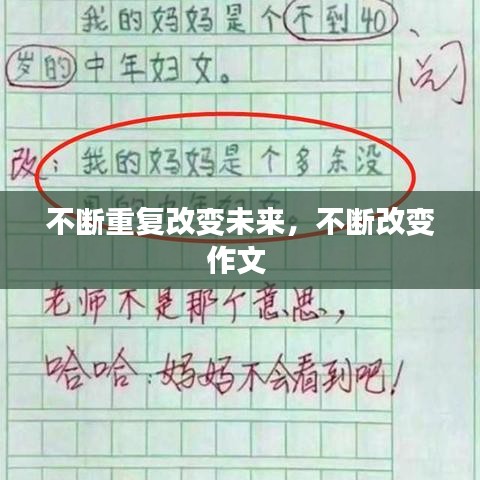 我的妈妈是个不到40
岁的中年妇女。
阅
改：我的妈妈是个多余没
用的中年妇女。
不断重复改变未来，不断改变
作文
老师不是那个意思，
哈哈：妈妈不会看到吧！